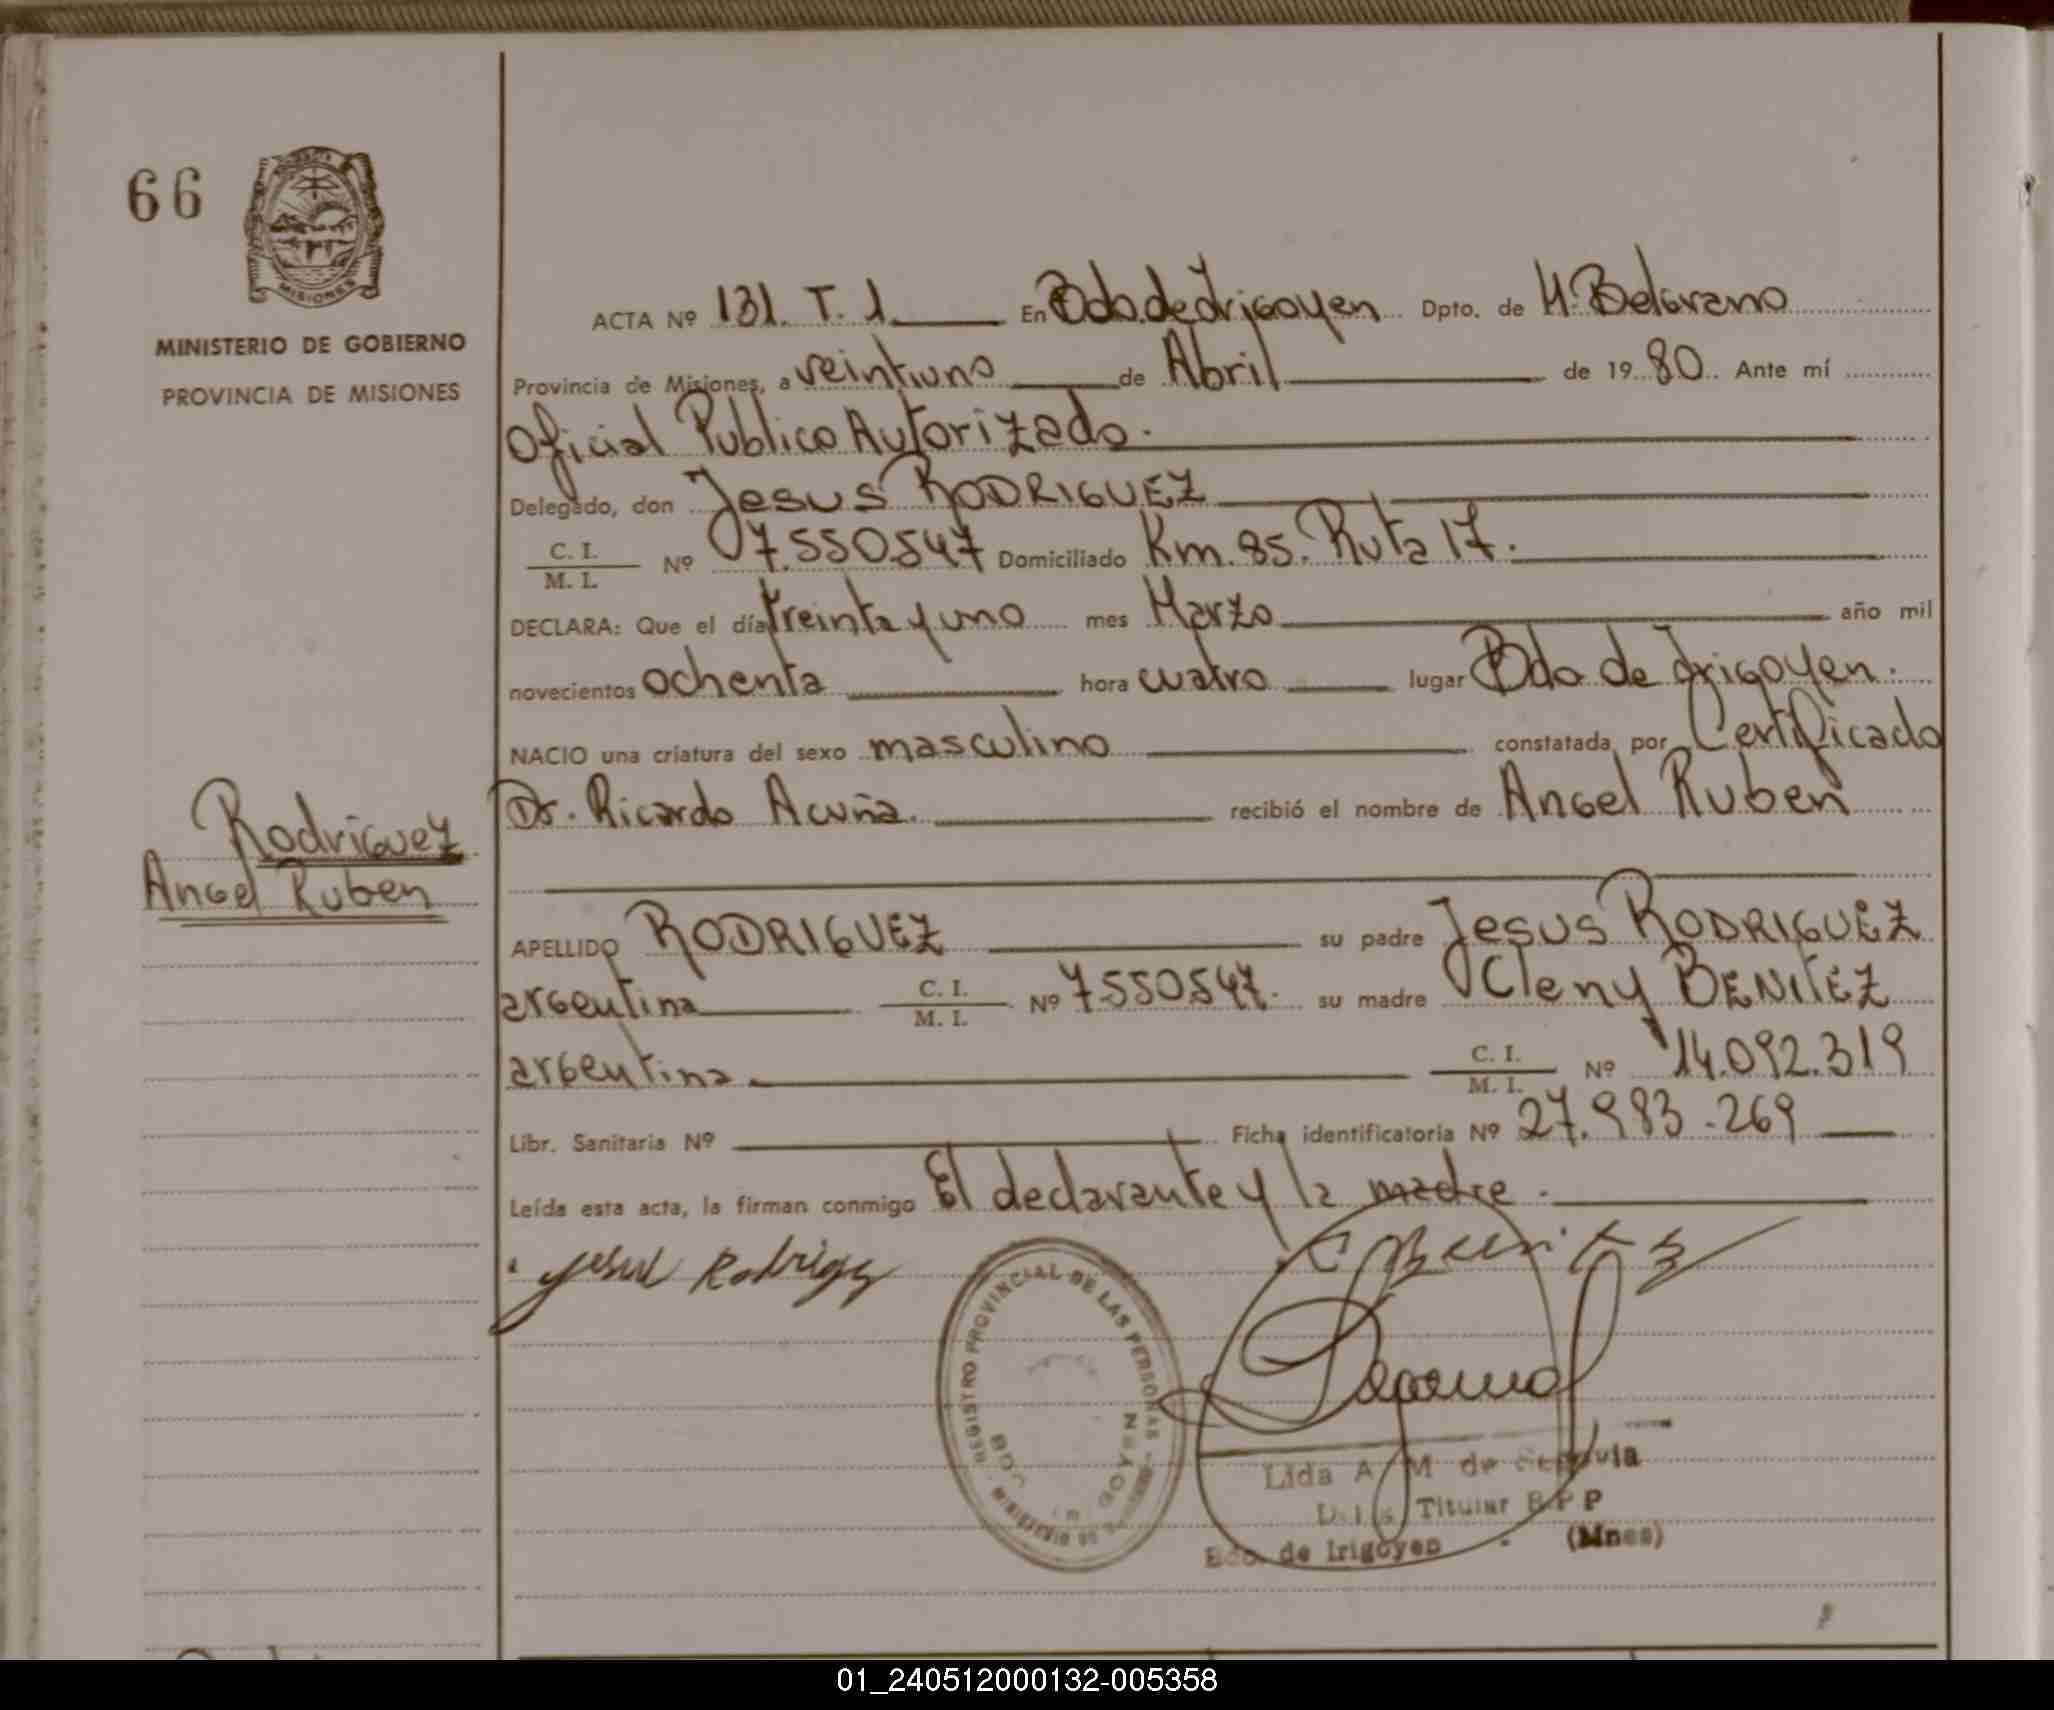 66
MISIONES
MINISTERIO DE GOBIERNO
PROVINCIA DE MISIONES
Rodriguez
Angel Ruben
ACTA Nº 131. T. 1 En Bdo. de Irigoyen Dpto. de M. Belgrano
Provincia de Misiones, a veintiuno de Abril de 1980. Ante mí
Oficial Publico Autorizado.
Delegado, don Jesus RODRIGUEZ
C. I.
M. I. Nº 7.550547 Domiciliado Km. 85. Ruta 17.
DECLARA: Que el día treinta y uno mes Marzo año mil
novecientos ochenta hora cuatro lugar Bdo de Irigoyen.
NACIO una criatura del sexo masculino constatada por Certificado
Dr. Ricardo Acuña. recibió el nombre de Angel Ruben
APELLIDO RODRIGUEZ su padre Jesus RODRIGUEZ
argentina C. I.
M. I. Nº 7550547. su madre Cleny BENITEZ
argentina C. I.
M. I. Nº 14.092.319
Libr. Sanitaria Nº Ficha identificatoria Nº 27.983.269
Leída esta acta, la firman conmigo El declarante y la madre.
Jesus Rodrigz
C Benitez
REGISTRO PROVINCIAL DE LAS PERSONAS
Lida A M de
Titular R P P
Bdo. de Irigoyen (Mnes)
01_240512000132-005358